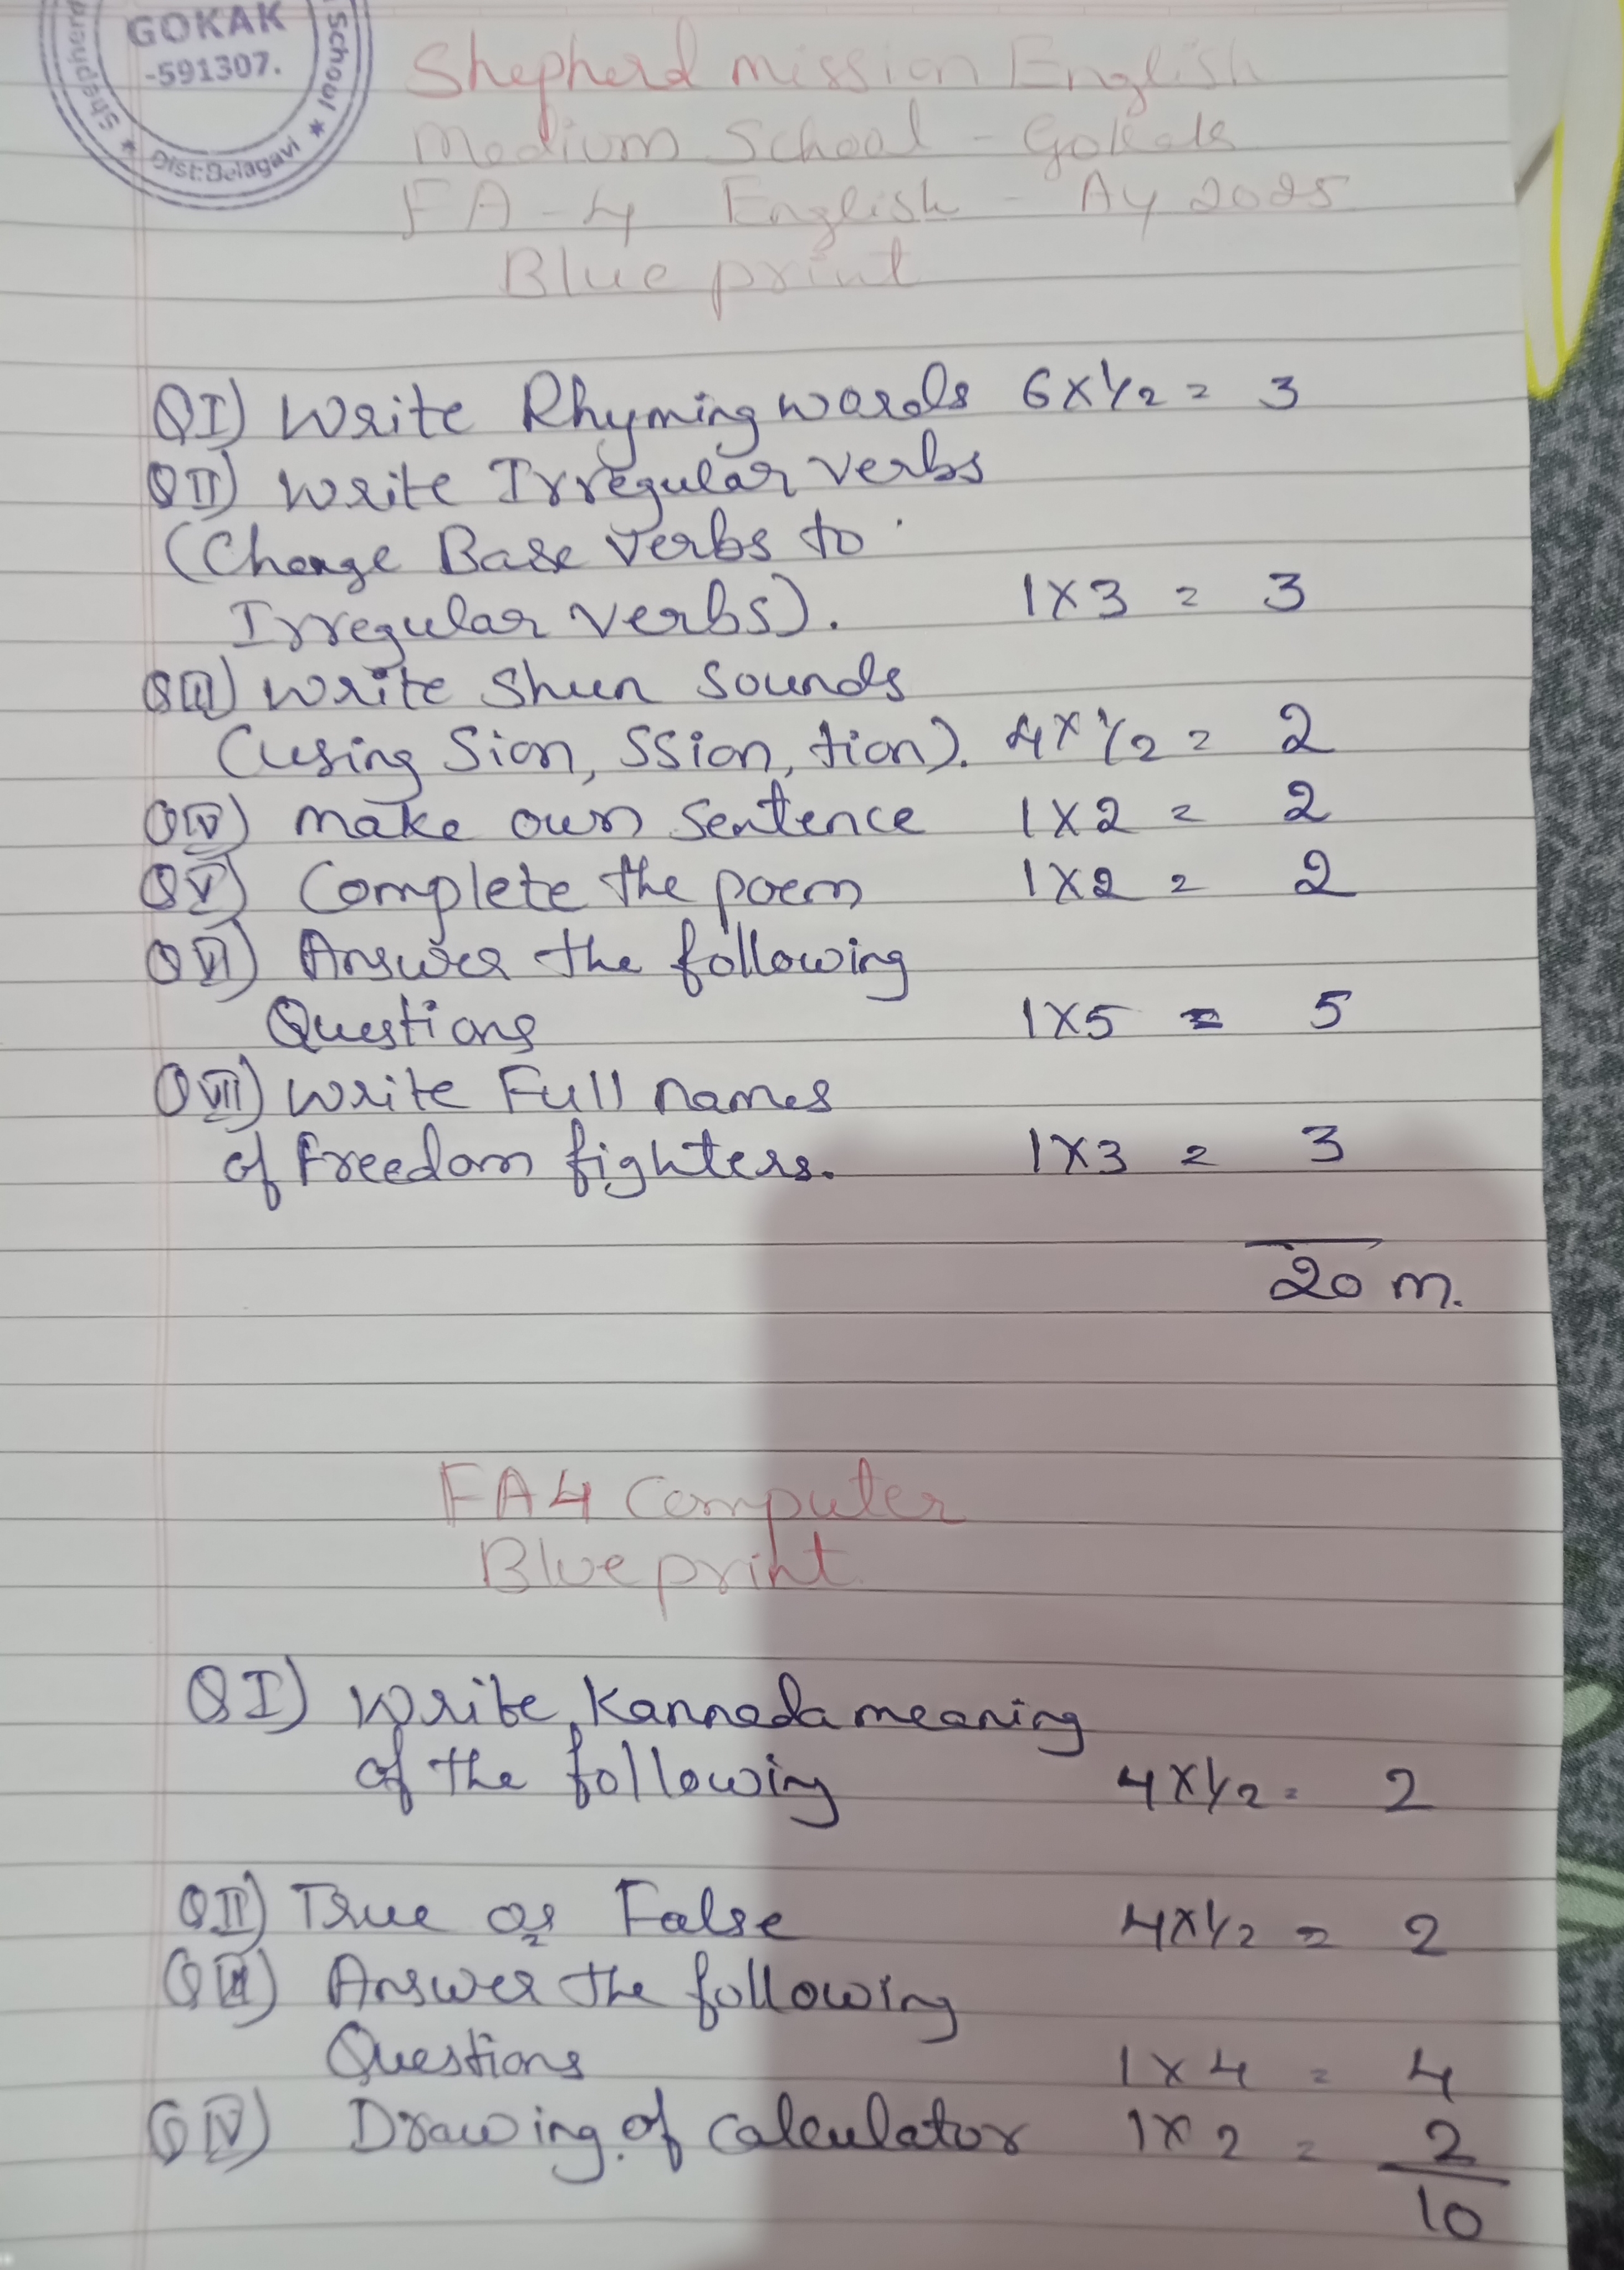 GOKAK
-591307.
Shepherd
School
Dist:Belagavi
Shepherd mission English
Medium School - Gokak
FA-4 English - Ay 2025
Blue print
QI) Write Rhyming words 6x1/2 = 3
QII) Write Irregular verbs
(Change Base verbs to
Irregular verbs). 1x3 = 3
QIII) Write Shun Sounds
(using Sion, SSion, tion). 4x1/2 = 2
QIV) make own Sentence 1x2 = 2
QV) Complete the poem 1x2 = 2
QVI) Answer the following
Questions 1x5 = 5
QVII) Write Full names
of freedom fighters. 1x3 = 3
20 m.
FA4 Computer
Blue print
QI) Write Kannada meaning
of the following 4x1/2 = 2
QII) True or False 4x1/2 = 2
QIII) Answer the following
Questions 1x4 = 4
QIV) Drawing of calculator 1x2 = 2
10